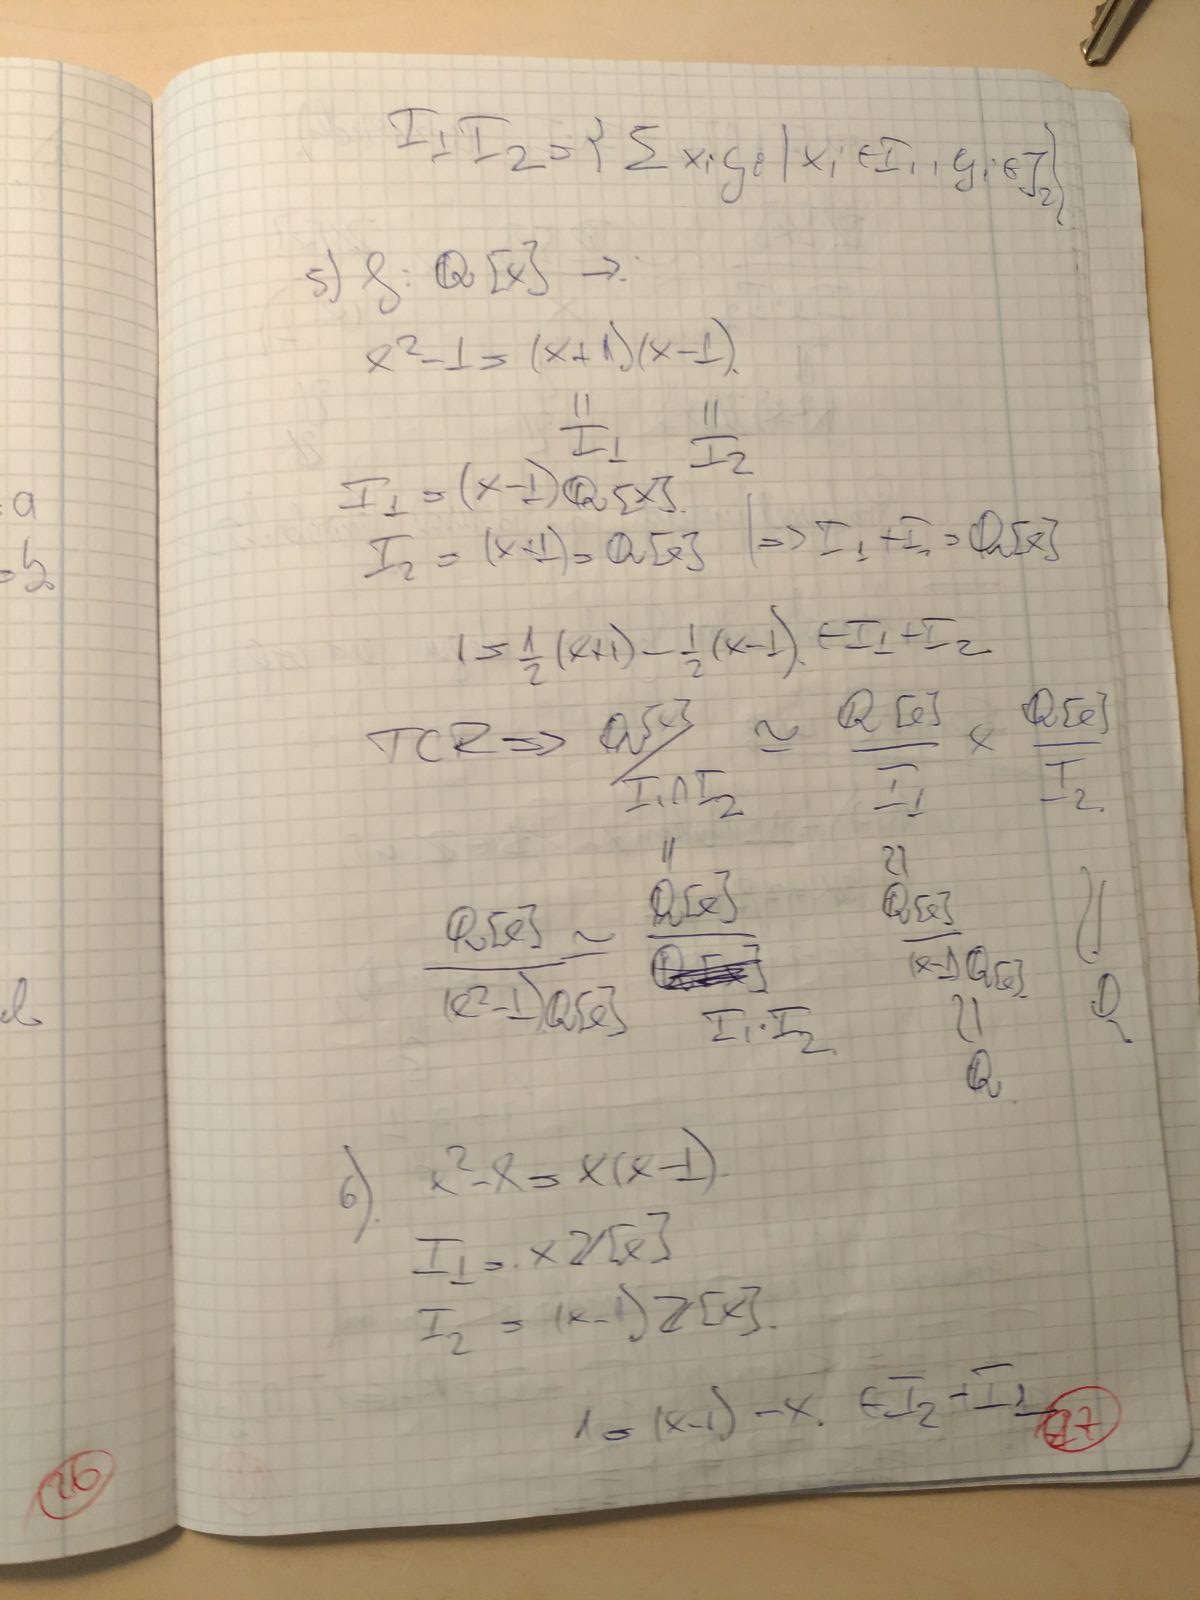 I₁I₂ = { Σ xᵢyᵢ | xᵢ ∈ I₁, yᵢ ∈ I₂}
5) f: ℚ[x] →
x² - 1 = (x+1)(x-1).
|| ||
I₁ I₂
I₁ = (x-1)ℚ[x].
I₂ = (x+1) = ℚ[x] | => I₁ + I₂ = ℚ[x]
1 = 1/2 (x+1) - 1/2 (x-1). ∈ I₁ + I₂
TCR => ℚ[x] / I₁∩I₂ ≃ ℚ[x] / I₁ × ℚ[x] / I₂.
|| ≀| ≀|
ℚ[x] / (x²-1)ℚ[x] ≃ ℚ[x] / I₁·I₂ ℚ[x] / (x-1)ℚ[x] ℚ
≀|
ℚ.
6). x² - x = x(x-1).
I₁ = x ℤ[x]
I₂ = (x-1) ℤ[x].
1 = (x-1) - x. ∈ I₂ + I₁
27
a
= b
26